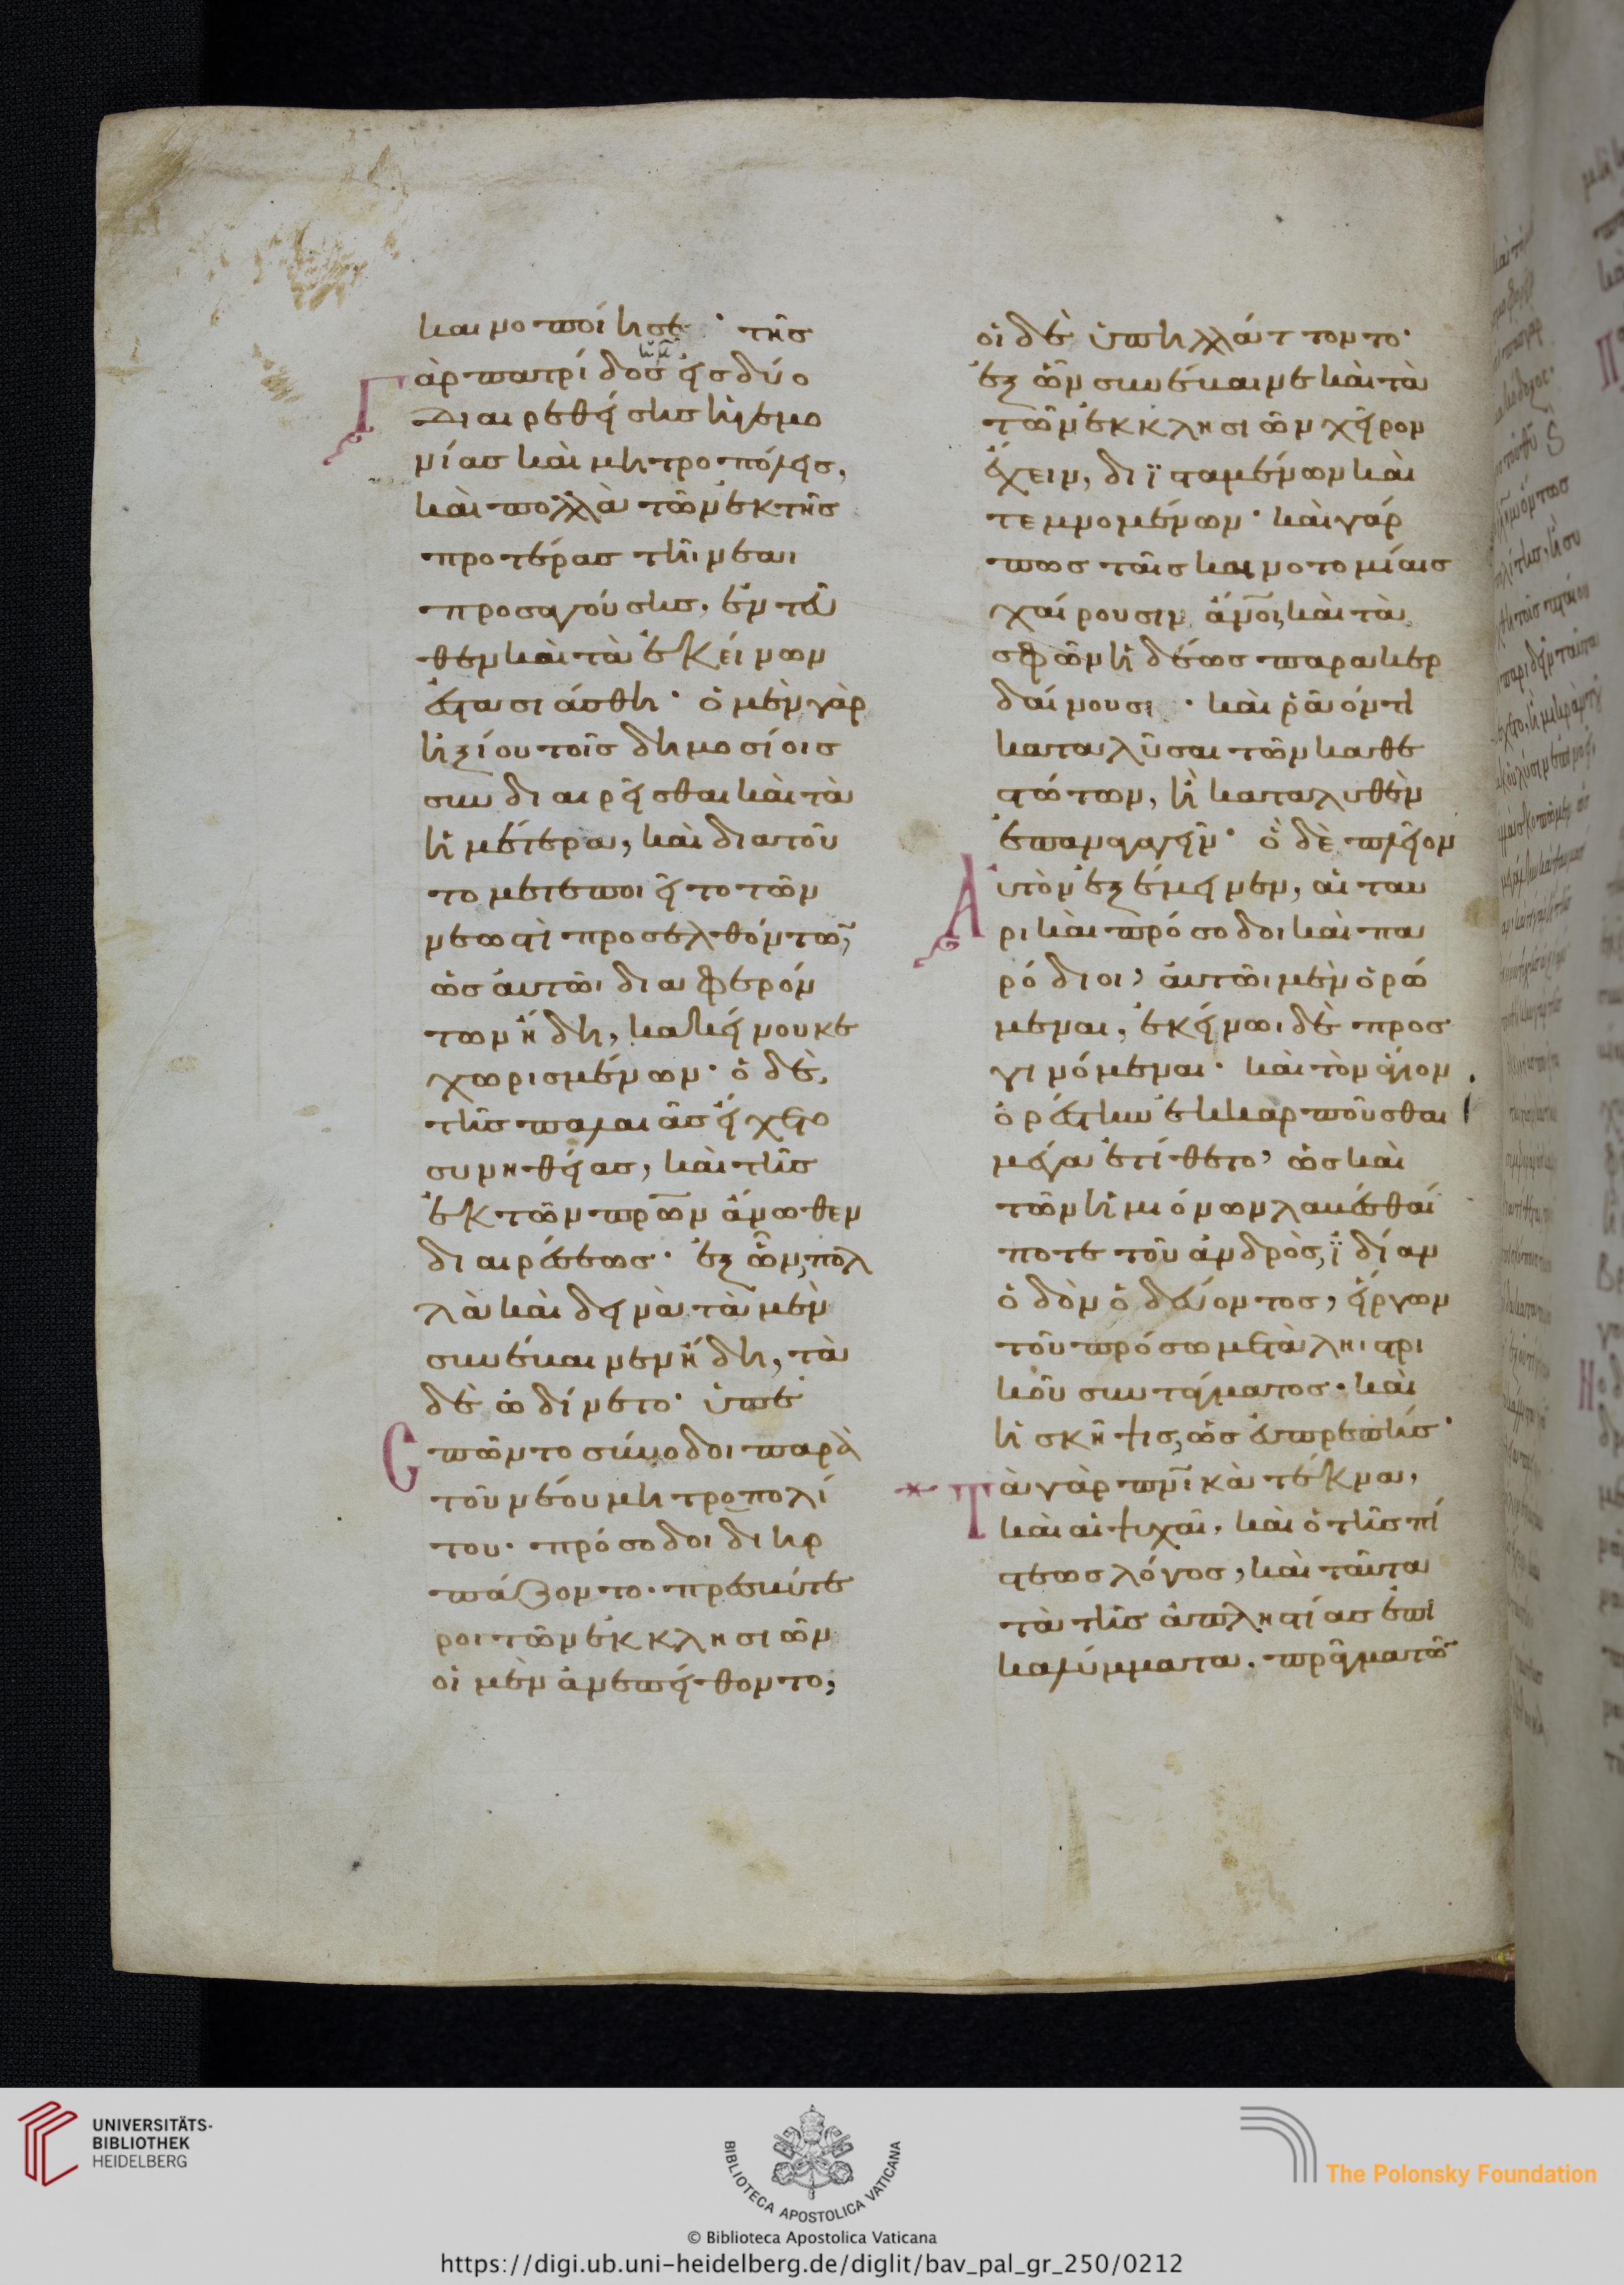 καινοποιήσει· τῆς
Γὰρ πατρίδος ἡμῖν εἰς δύο
διαιρεθείσης ἡγεμο
νίας καὶ μητροπόλεις,
καὶ πολλὰ τῶν ἐκ τῆς
προτέρας τῆι νέαι
προσαγούσης, ἐντεῦ
θεν καὶ τὰ ἐκείνων
ἐστασιάσθη· ὁ μὲν γὰρ
ἠξίου τοῖς δημοσίοις
συνδιαιρεῖσθαι καὶ τὰ
ἡμέτερα, καὶ διατοῦ
το μετεποιεῖτο τῶν
νεωστὶ προσελθόντω̃,
ὡς αὐτῶι διαφερόν
των ἤδη, κακείνου κε
χωρισμένων· ὁ δὲ,
τῆς παλαιᾶς εἴχετο
συνηθείας, καὶ τῆς
ἐκ τῶν πρων ἄνωθεν
διαιρέσεως· ἐξ ὧν, πολ
λὰ καὶ δεινὰ τὰ μὲν
συνέβαινεν ἤδη, τὰ
δὲ ὠδίνετο· ὑπε
Cπῶντο σύνοδοι παρὰ
τοῦ νέου μητροπολί
του· πρόσοδοι διηρ
πάζοντο· πρεσβύτε
ροι τῶν ἐκκλησιῶν
οἱ μὲν ἀνεπείθοντο,
οἱ δὲ ὑπηλλάττοντο·
ἐξ ὧν συνέβαινε καὶ τὰ
τῶν ἐκκλησιῶν χεῖρον
ἔχειν, διϊσταμένων καὶ
τεμνομένων· καὶ γάρ
πως ταῖς καινοτομίαις
χαίρουσιν ἄνοι, καὶ τὰ
σφῶν ἡδέως παρακερ
δαίνουσι· καὶ ῥᾶόν τι
καταλῦσαι τῶν καθε
στώτων, ἢ καταλυθὲν
ἐπαναγαγεῖν· ὃ δὲ πλεῖον
Αὐτὸν ἐξέμεινεν, αἱ ταυ
ρι καὶ πρόσοδοι καὶ πα
ρόδιοι, αὐτῶι μὲν ὁρώ
μεναι, ἐκείνωι δὲ προσ
γινόμεναι· καὶ τὸν ἅγιον
ὀρέστην ἐκκαρποῦσθαι
μέγα ἐτίθετο, ὡς καὶ
τῶν ἡμιόνων λαβέσθαί
ποτε τοῦ ἀνδρὸς, ϊδίαν
ὁδὸν ὁδεύοντος, εἴργων
τοῦ πρόσω μετὰ ληιστρι
κοῦ συντάγματος· καὶ
ἡ σκῆψις, ὡς εὐπρεπής·
Τὰ γὰρ πνικὰ τέκνα,
καὶ αἱ ψυχαὶ, καὶ ὁ τῆς πί
στεως λόγος, καὶ ταῦτα
τὰ τῆς ἀπληστίας ἐπι
καλύμματα. πρᾶγμα τῶ̃
UNIVERSITÄTS-
BIBLIOTHEK
HEIDELBERG
BIBLIOTECA APOSTOLICA VATICANA
The Polonsky Foundation
© Biblioteca Apostolica Vaticana
https://digi.ub.uni-heidelberg.de/diglit/bav_pal_gr_250/0212